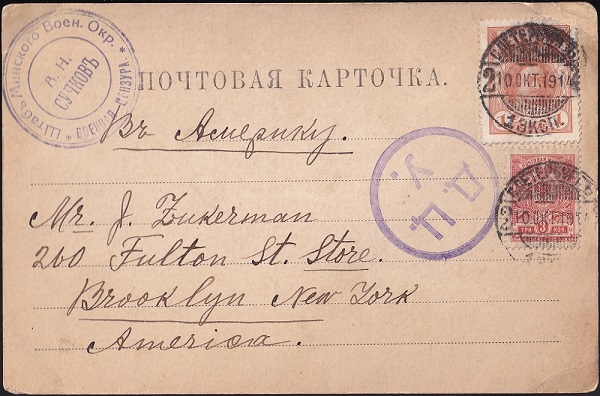 Штабъ Минского Воен. Окр.
* ВОЕННАЯ ЦЕНЗУРА *
А. Н.
СУЧКОВЪ
ПОЧТОВАЯ КАРТОЧКА.
Въ Америку.
Д. Ц.
У.
Mr. J. Zukerman
260 Fulton St. Store.
Brooklyn New York
America.
10.ОКТ.1914
1 ЭКСП.
10.ОКТ.1914
3